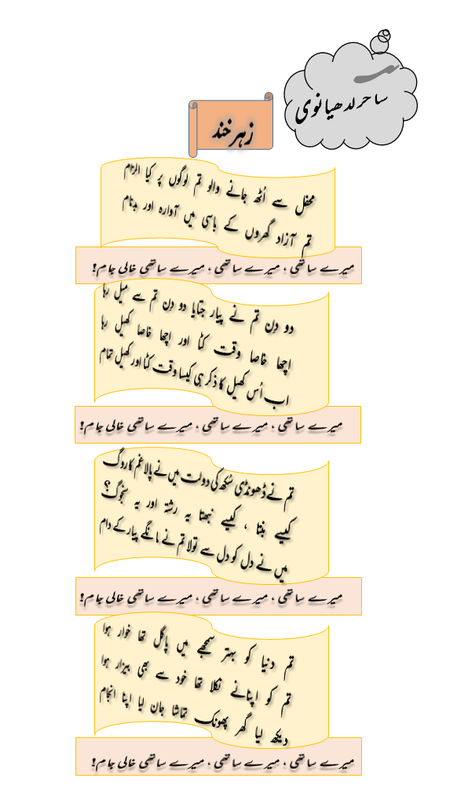 ساحر لدھیانوی
زہر خند
محفل سے اُٹھ جانے والو تم لوگوں پر کیا الزام
تم آزاد گھروں کے باسی میں آوارہ اور بدنام
میرے ساتھی ، میرے ساتھی ، میرے ساتھی خالی جام!
دو دن تم نے پیار جتایا دو دن تم سے میل رہا
اچھا خاصا وقت کٹا اور اچھا خاصا کھیل رہا
اب اُس کھیل کا ذکر ہی کیسا وقت کٹا اور کھیل تمام
میرے ساتھی ، میرے ساتھی ، میرے ساتھی خالی جام!
تم نے ڈھونڈی سُکھ کی دولت میں نے پالا غم کا روگ
کیسے بنتا ، کیسے نبھتا یہ رشتہ اور یہ سنجوگ؟
میں نے دل کو دل سے تولا تم نے مانگے پیار کے دام
میرے ساتھی ، میرے ساتھی ، میرے ساتھی خالی جام!
تم دنیا کو بہتر سمجھے میں پاگل تھا خوار ہوا
تم کو اپنانے نکلا تھا خود سے بھی بیزار ہوا
دیکھ لیا گھر پھونک تماشا جان لیا اپنا انجام
میرے ساتھی ، میرے ساتھی ، میرے ساتھی خالی جام!